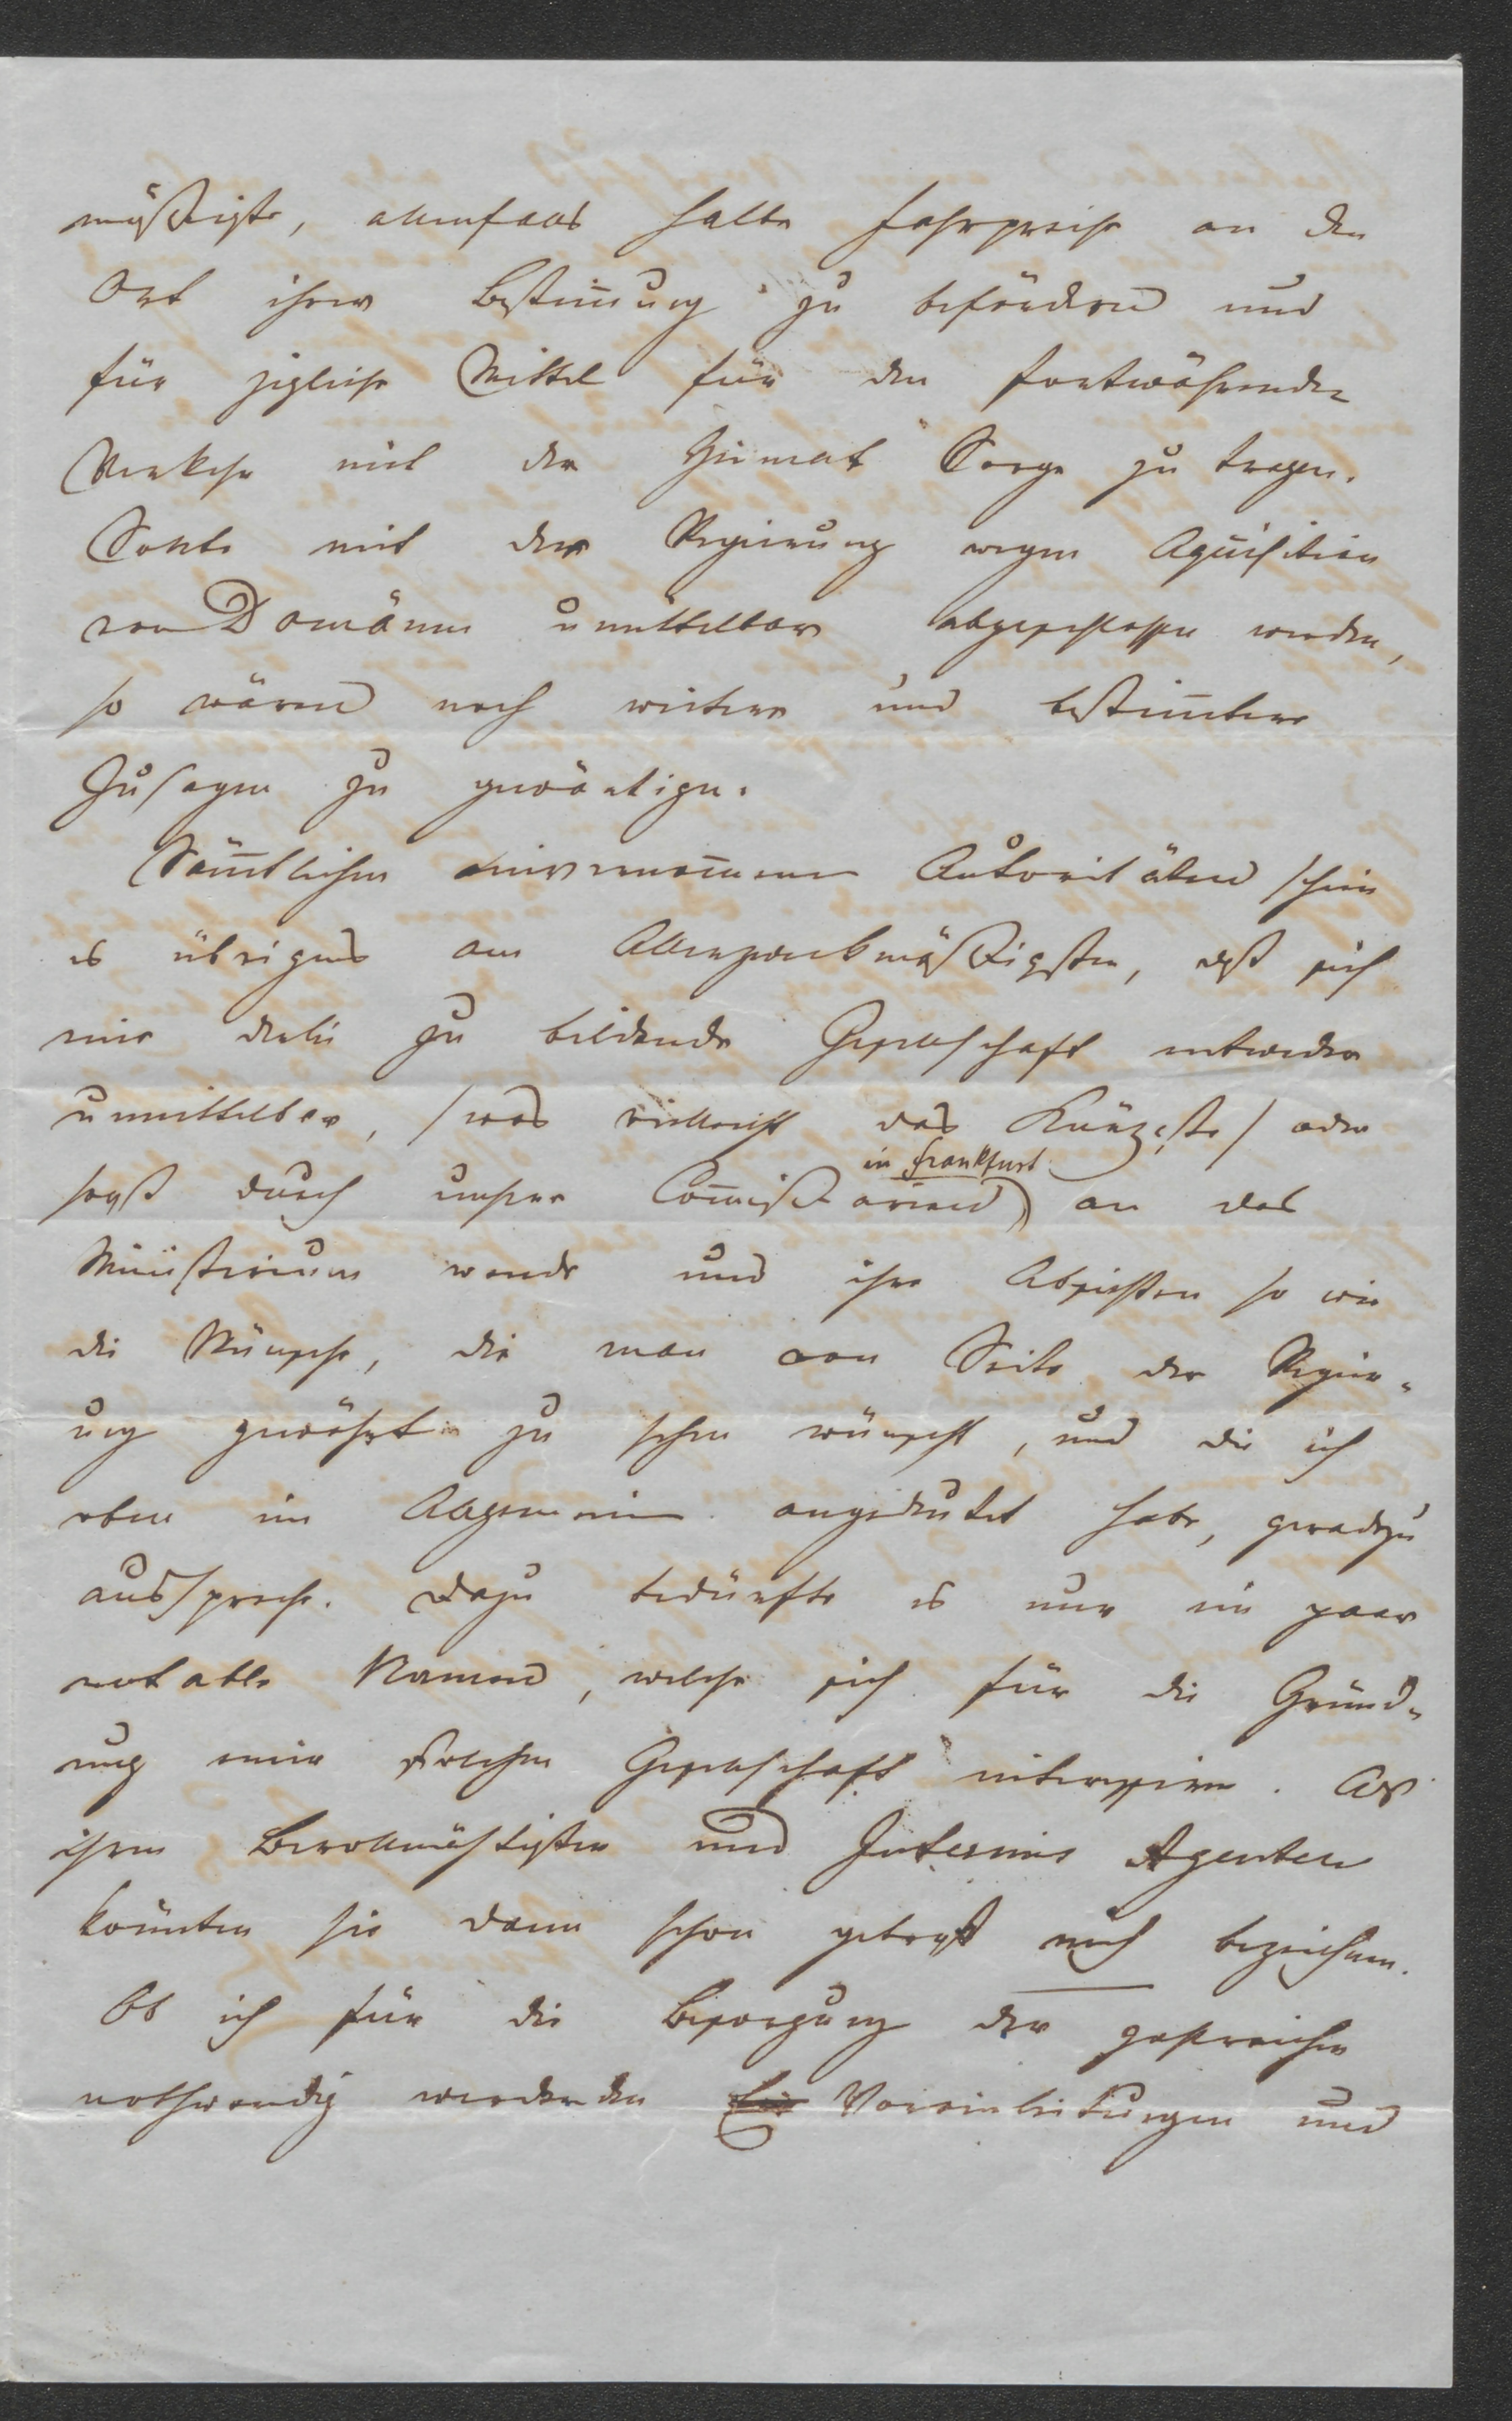 mäßigste, allenfalls halbe Fahrpreise an den
Ort ihrer Bestim̄ung zu befördern und
für jegliche Mittel für den fortwährenden
Verkehr mit der Heimat Sorge zu tragen.
Sollte mit der Regierung wegen Aquisition
von Domänen unmittelbar abgeschlossen werden,
so wären noch weitere und bestim̄tere
Zusagen zu gewärtigen.
Säm̄tlichen einvernom̄enen Autoritäten schien
es übrigens am Allerzweckmäßigsten, daß sich
eine dahin zu bildende Gesellschaft entweder
unmittelbar, /was vielleicht das Kürzeste/ oder
sonst durch unsere Com̄issarien in Frankfurt an das
Ministerium wende und ihre Absichten so wie
die Wünsche, die man von Seite der Regier-
ung gewährt zu sehen wünscht, und die ich
oben im Allgemeinen angedeutet habe, geradezu
ausspreche. Dazu bedürfte es nur ein paar
notable Namen, welche sich für die Gründ-
ung einer solchen Gesellschaft interessiren. Als
ihren Bevollmächtigten und Interims Agenten
könnten sie dann schon getrost mich bezeichnen.
Ob ich für die Besorgung der
nothwendig werdenden Ein Voreinleitungen und